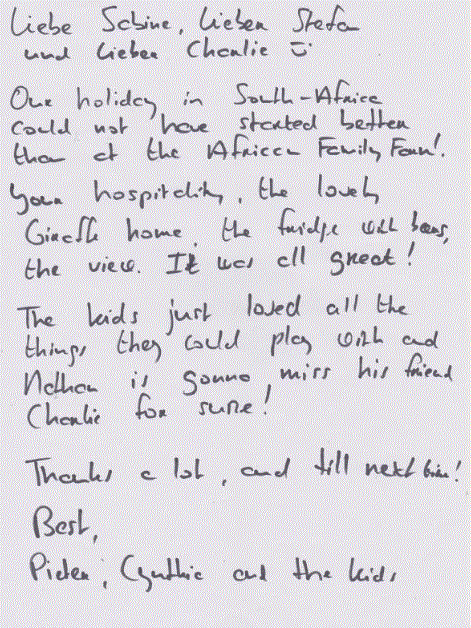 Liebe Sabine, Lieber Stefan
und Lieber Charlie ☺
Our holiday in South-Africa
could not have started better
than at the African Family Farm!
Your hospitality, the lovely
Giraffe home, the fridge with beers,
the view. It was all great!
The kids just loved all the
things they could play with and
Nathan is gonna miss his friend
Charlie for sure!
Thanks a lot, and till next time!
Best,
Pieter, Cynthia and the kids